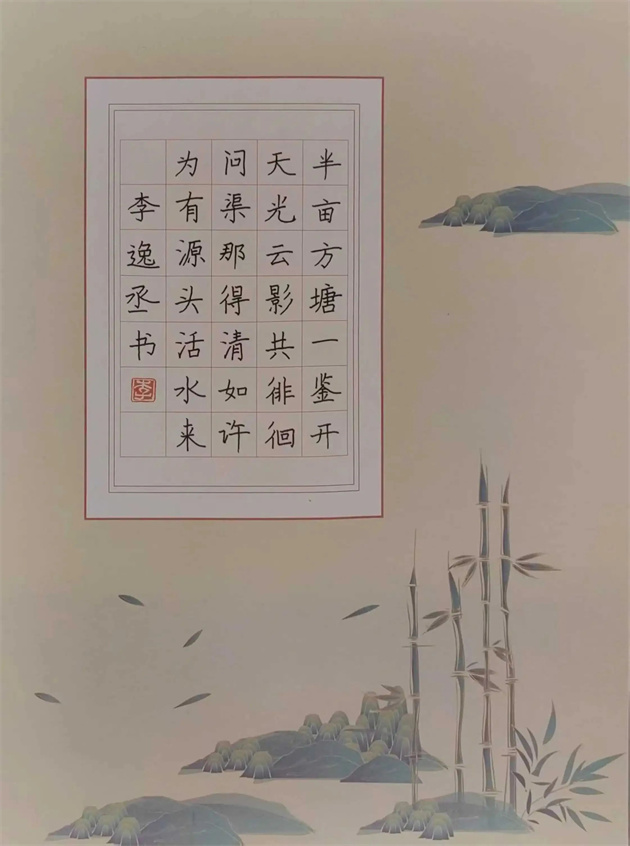 半亩方塘一鉴开
天光云影共徘徊
问渠那得清如许
为有源头活水来
李逸丞书
李